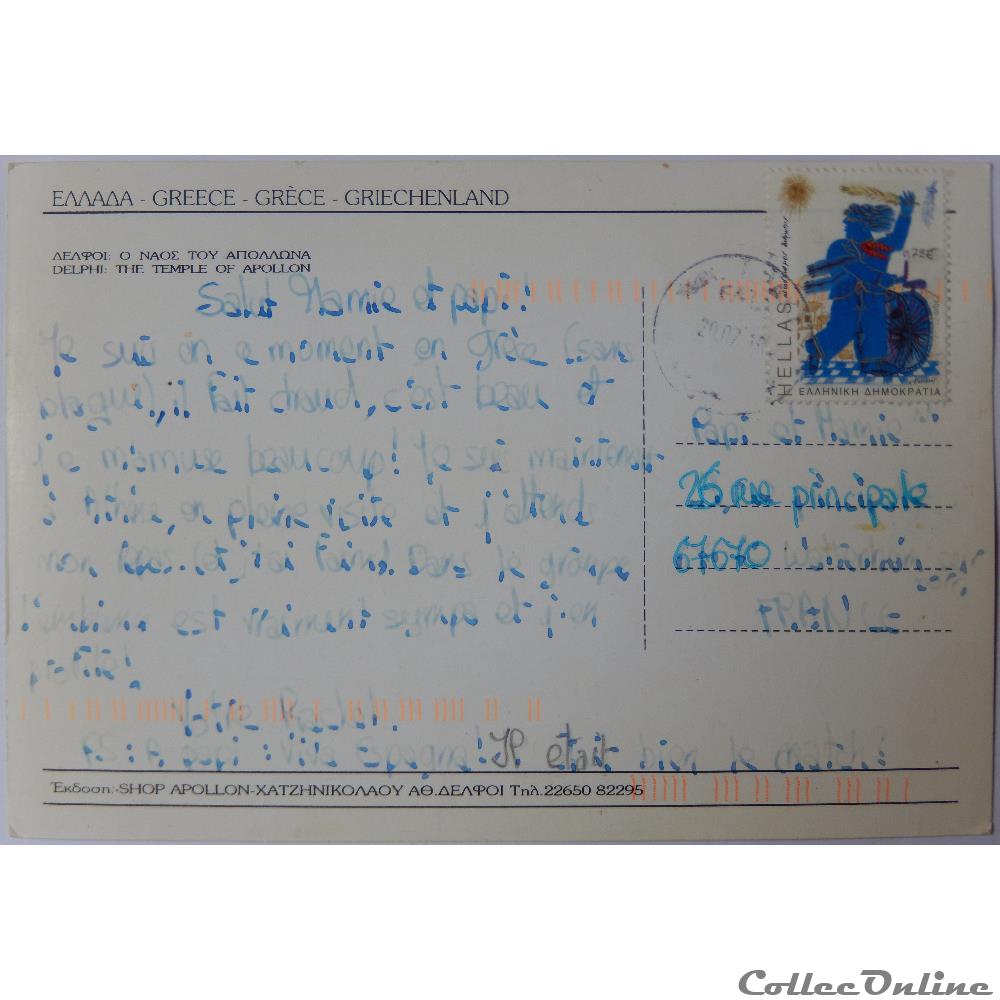 ΕΛΛΑΔΑ - GREECE - GRÈCE - GRIECHENLAND
ΔΕΛΦΟΙ: Ο ΝΑΟΣ ΤΟΥ ΑΠΟΛΛΩΝΑ
DELPHI: THE TEMPLE OF APOLLON
HELLAS
0,78€
ΕΛΛΗΝΙΚΗ ΔΗΜΟΚΡΑΤΙΑ
Salut Mamie et papi!
Je suis en ce moment en Grèce (sans
blague), il fait chaud, c'est beau et
je m'amuse beaucoup! Je suis maintenant
à Athène, en pleine visite et j'attends
mon repas (et j'ai faim). Dans le groupe
l'ambiance est vraiment sympa et j'en
profite!
Votre
PS: A papi: Viva Espagna! Il etait bien le match?
Papi et Mamie
26, rue principale
67670
FRANCE
Έκδοση:-SHOP APOLLON-ΧΑΤΖΗΝΙΚΟΛΑΟΥ ΑΘ.ΔΕΛΦΟΙ Τηλ.22650 82295
CollecOnline